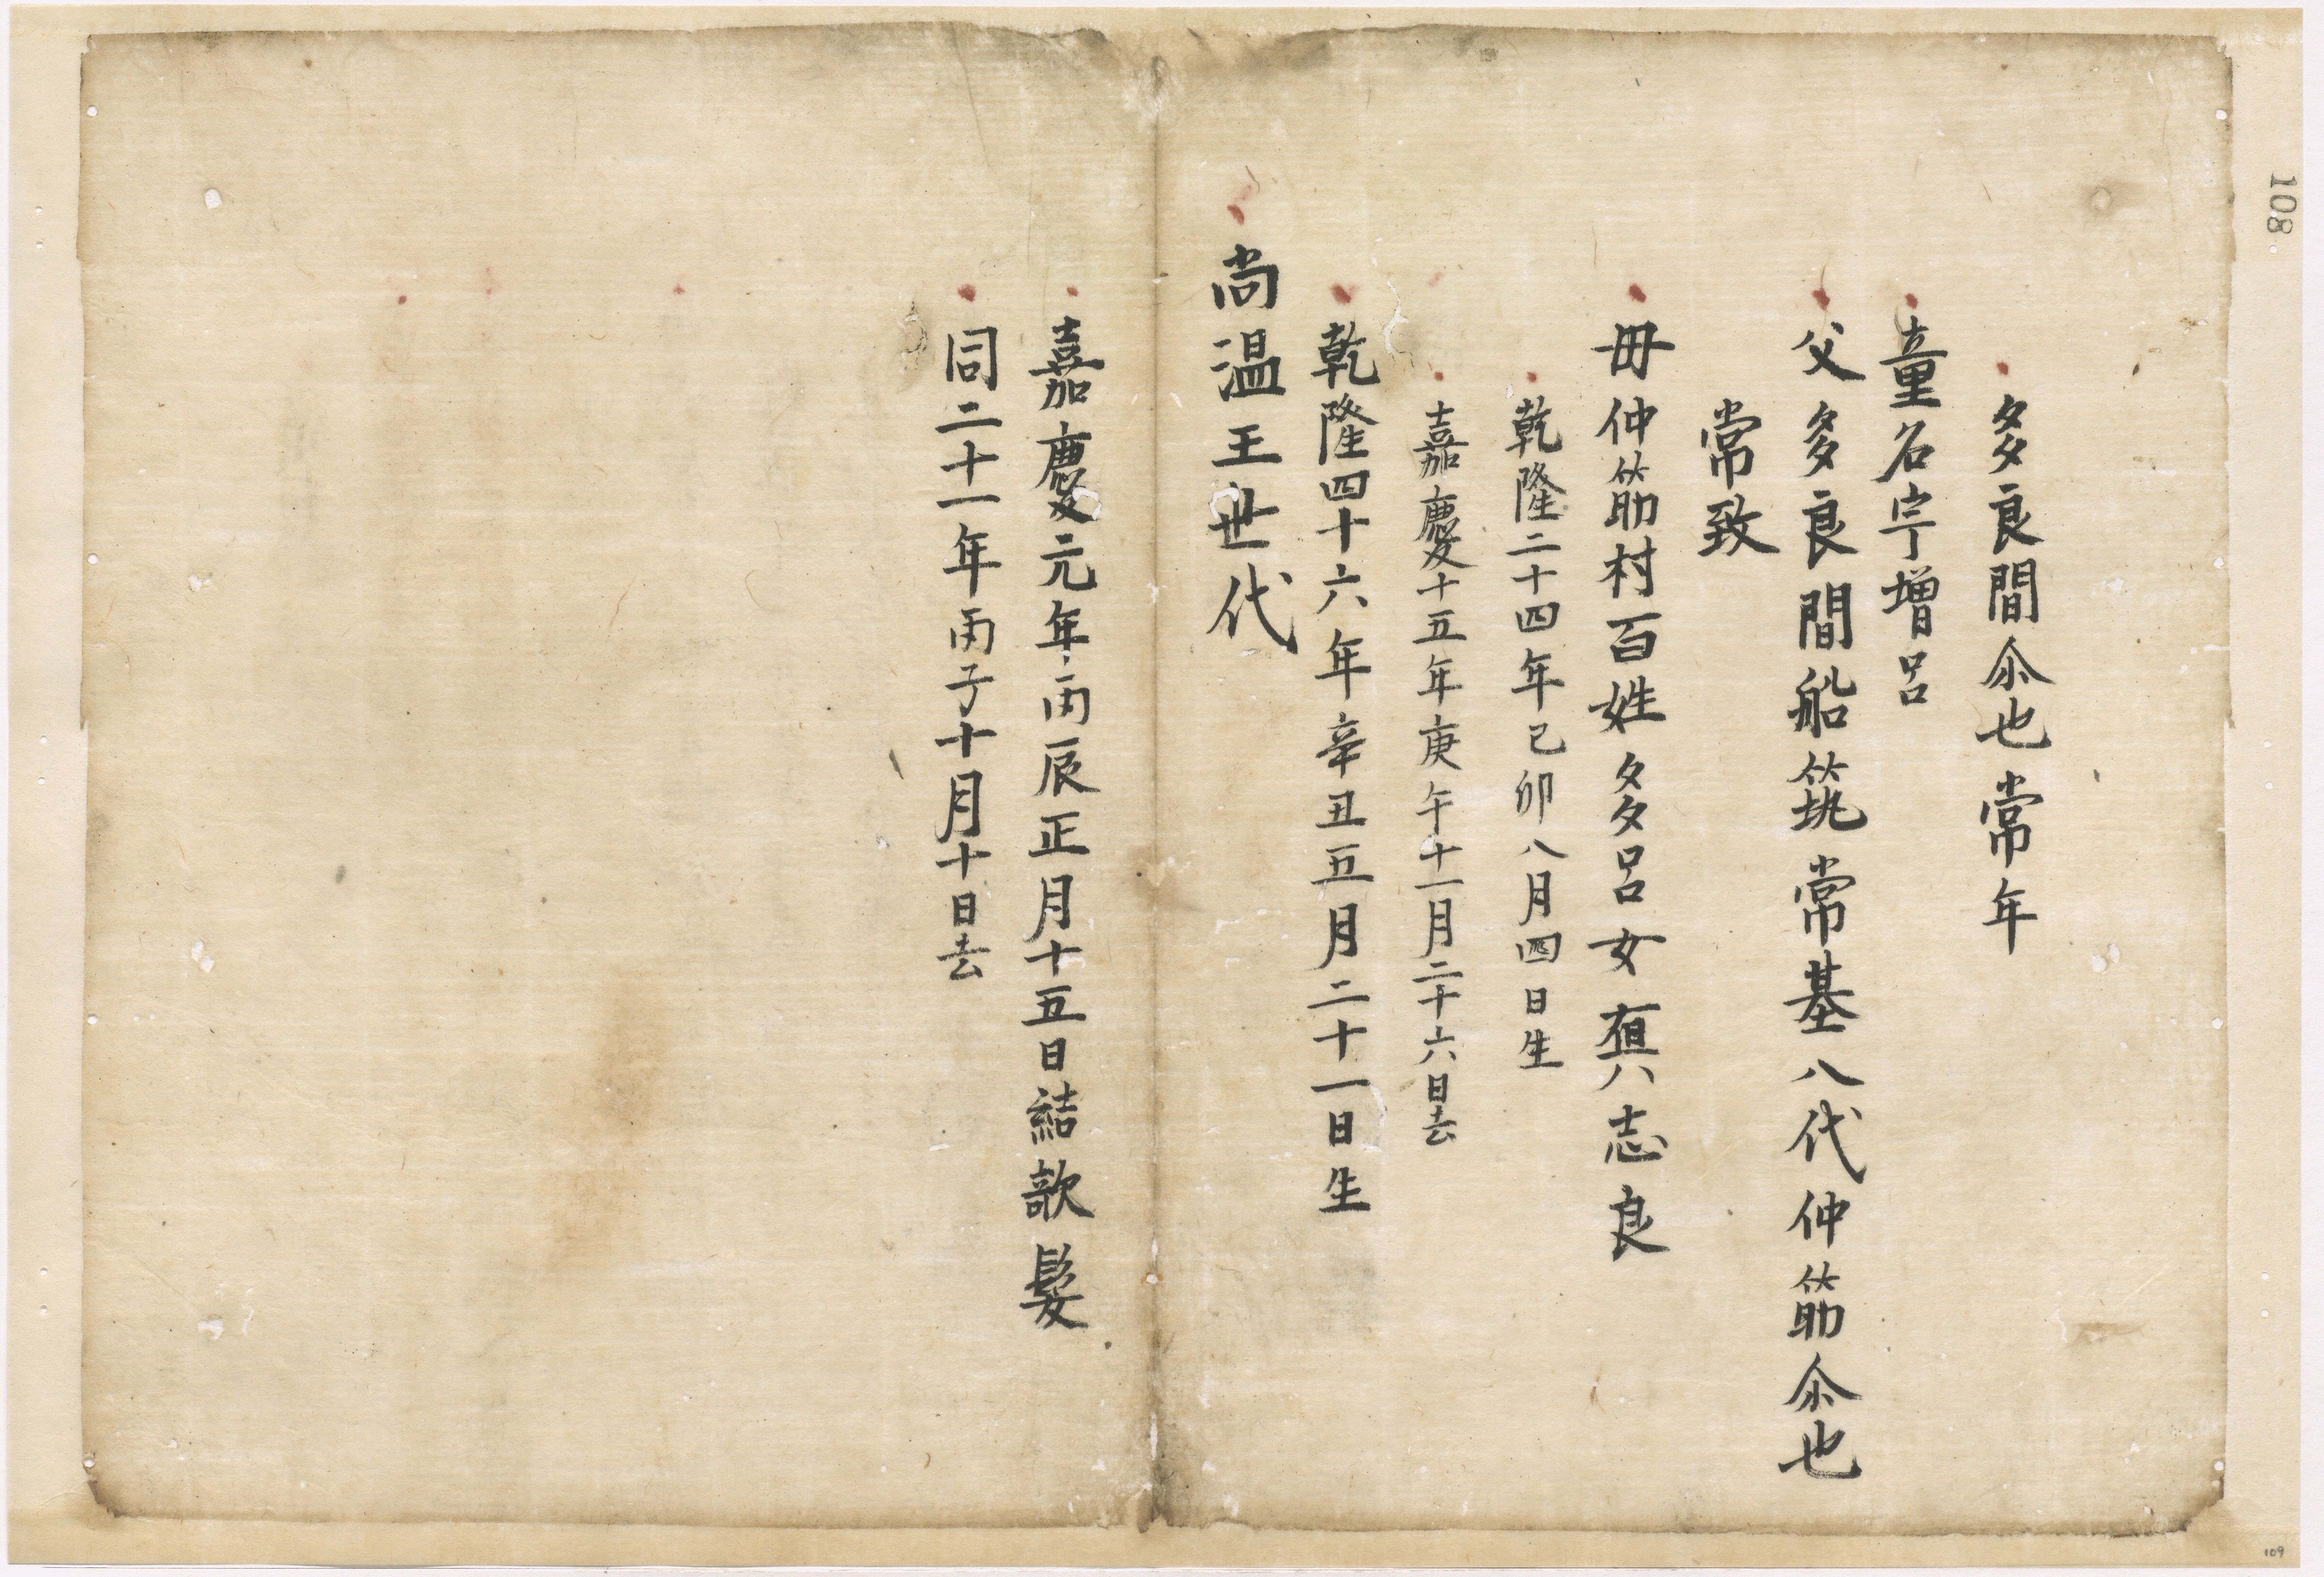 108
多良間尒也常年
童名宇増呂
父多良間船筑常基八代仲筋尒也
常致
母仲筋村百姓多呂女 志良
乾隆二十四年己卯八月四日生
嘉慶十五年庚午十一月二十六日去
乾隆四十六年辛丑五月二十一日生
尚温王世代
嘉慶元年丙辰正月十五日結歌髮
同二十一年丙子十月十日去
109